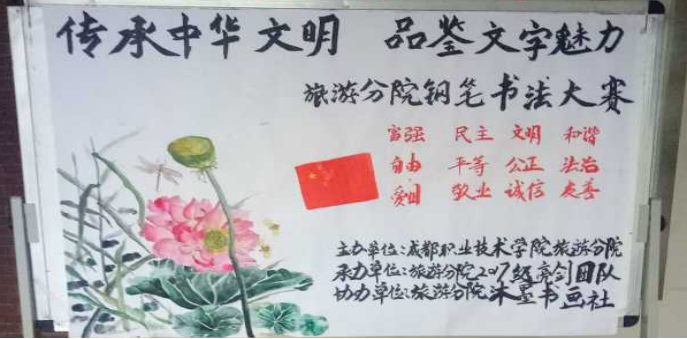 传承中华文明 品鉴文字魅力
旅游分院钢笔书法大赛
富强 民主 文明 和谐
自由 平等 公正 法治
爱国 敬业 诚信 友善
主办单位:成都职业技术学院旅游分院
承办单位:旅游分院2017级亮剑团队
协办单位:旅游分院沐墨书画社